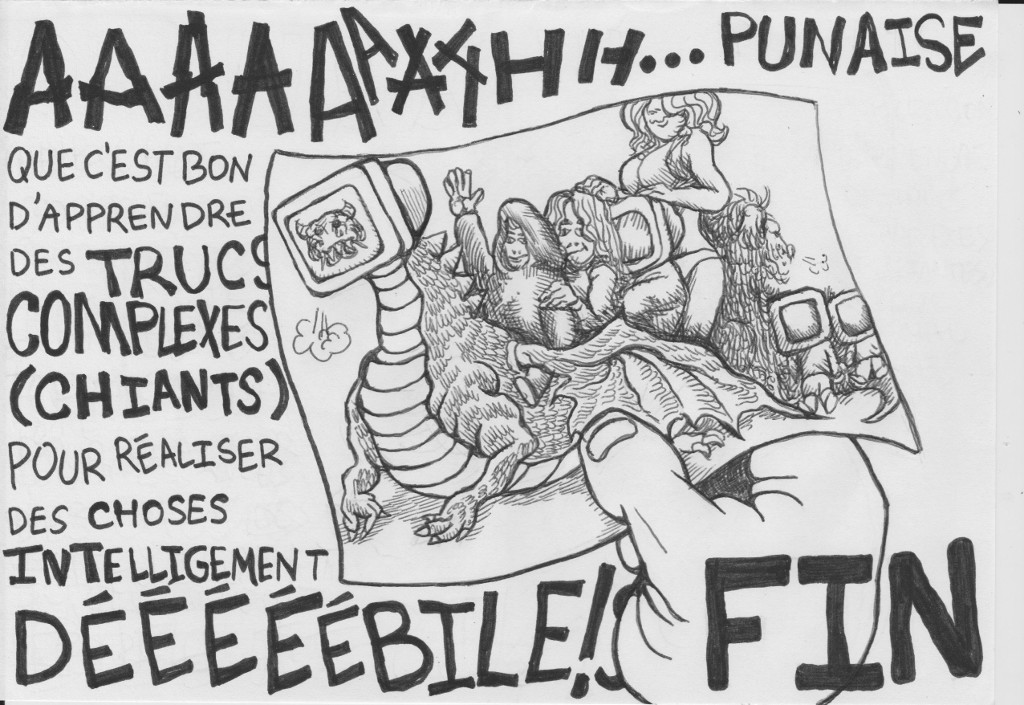 AAAAAAAAHHH... PUNAISE
QUE C'EST BON
D'APPRENDRE
DES TRUCS
COMPLEXES
(CHIANTS)
POUR RÉALISER
DES CHOSES
INTELLIGEMENT
DÉÉÉÉÉBILE!S
FIN